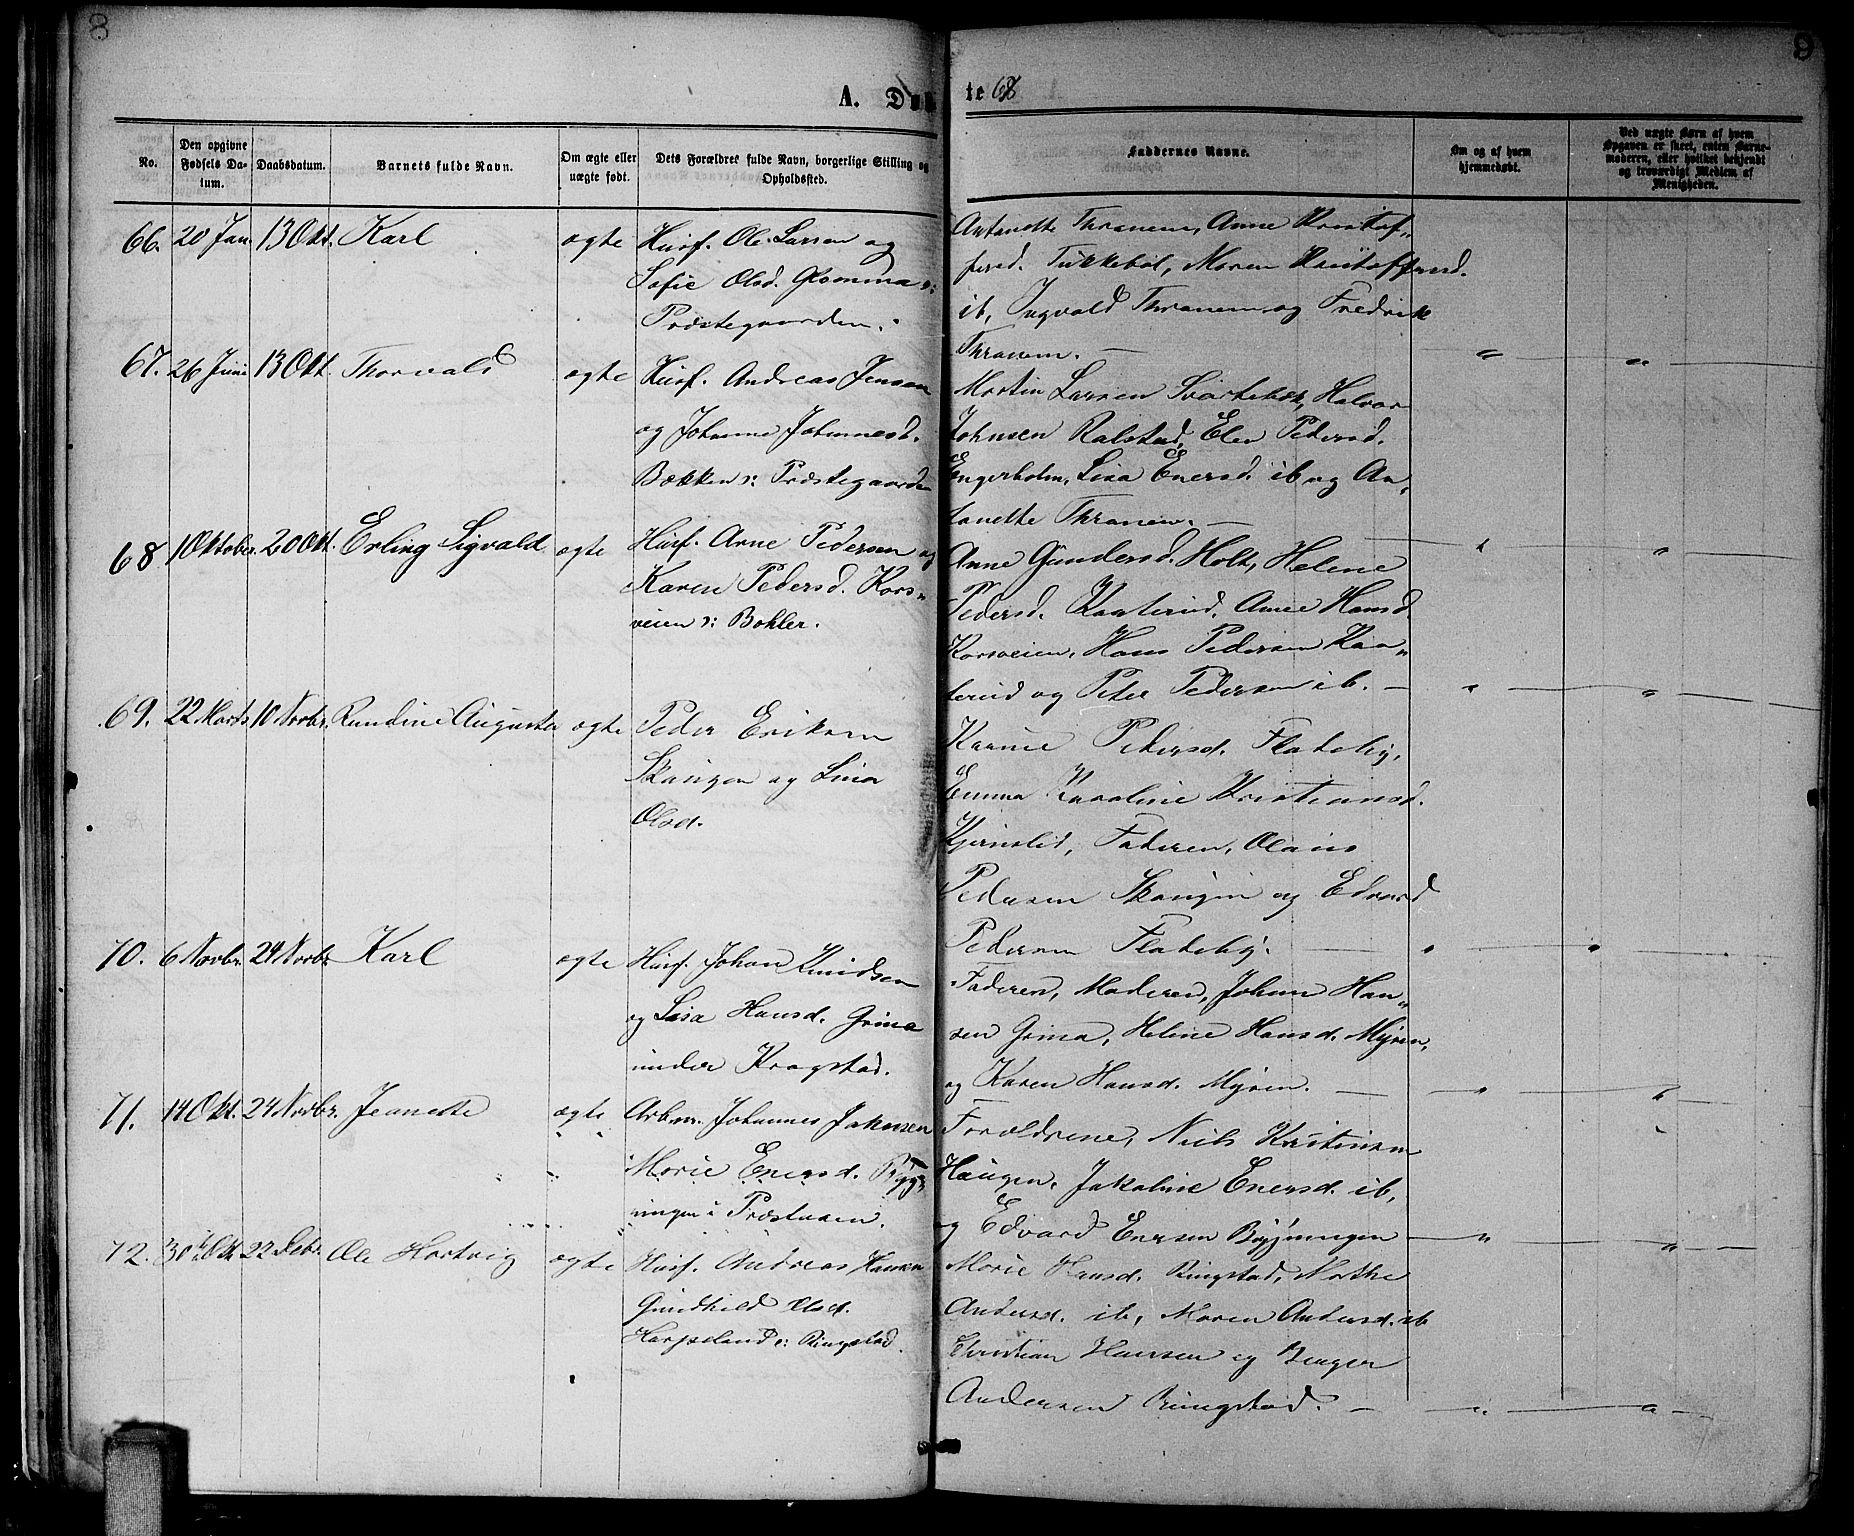 8
9
A. Døb
te 68
No.
Den opgivne Fødsels Datum.
Daabsdatum.
Barnets fulde Navn.
Om ægte eller uægte født.
Dets Forældres fulde Navn, borgerlige Stilling og Opholdssted.
Faddernes Navne.
Om og af hvem hjemmedøbt.
Ved uægte Børn af hvem Opgaven er skeet, enten Barnemoderen, eller hvilket bekjendt og troværdigt Medlem af Menigheden.
66. 20 Jan. 13 Okt. Karl ægte Husf. Ole Larsen og
Sofie Olsd. Glomma s:
Præstegaarden.
Antonette Thranem, Anne Kristof„
fersd. Tukkebøl, Maren Kristoffersd.
ib, Ingvald Thranem og Fredrik
Thranem. — " — "
67. 26 Juni 13 Okt. Thorvald ægte Husf. Andreas Jensen
og Johanne Johannesd.
Bækken s: Præstegaarden
Martin Larsen Svartebæk, Halvor
Johnsen Ralstad, Elev Pedersd.
Engerholm, Lisa Enersd. ib og An„
tonette Thranem. — " — "
68. 1 Oktober. 20 Okt. Erling Sigvald ægte Husf. Arne Pedersen og
Karen Pedersd. Kors„
veien s: Bohler.
Anne Gundersd. Holt, Helene
Pedersd. Kaaterud, Anne Hansd.
Korsveien, Hans Pedersen Kaa„
terud og Peter Pedersen ib. — " — "
69. 22 Marts 10 Novbr. Rundine Augusta ægte Peder Eriksen
Skaugen og Lina
Olsd.
Karine Pedersd. Fladeby,
Emma Karoline Kristiansd.
Kjernslid, Faderen, Olaus
Pedersen Skaugen og Edvard
Pedersen Fladeby. — " — "
70. 6 Novbr. 24 Novbr. Karl ægte Husf. Johan Knudsen
og Lisa Hansd. Grina
under Kragstad.
Faderen, Moderen, Johan Han„
sen Grina, Helene Hansd. Myren,
og Karen Hansd. Myren. — " — "
71. 14 Okt. 24 Novbr. Jeanette ægte Arbm. Johannes Jakobsen
Marie Enersd. Byg„
ningen i Præstesaen.
Forældrene, Niels Kristiansen
Haugen, Jakobine Enersd. ib,
og Edvard Enersen Bygningen — " — "
72. 30 Okt. 22 Debr. Ole Hartvig ægte Husf. Andreas Hansen
Gundhild Olsd.
Harpeland s: Ringstad.
Marie Hansd. Ringstad, Marthe
Andersd. ib, Maren Andersd. ib
Christian Hansen og Brager
Andersen Ringstad. — " — "